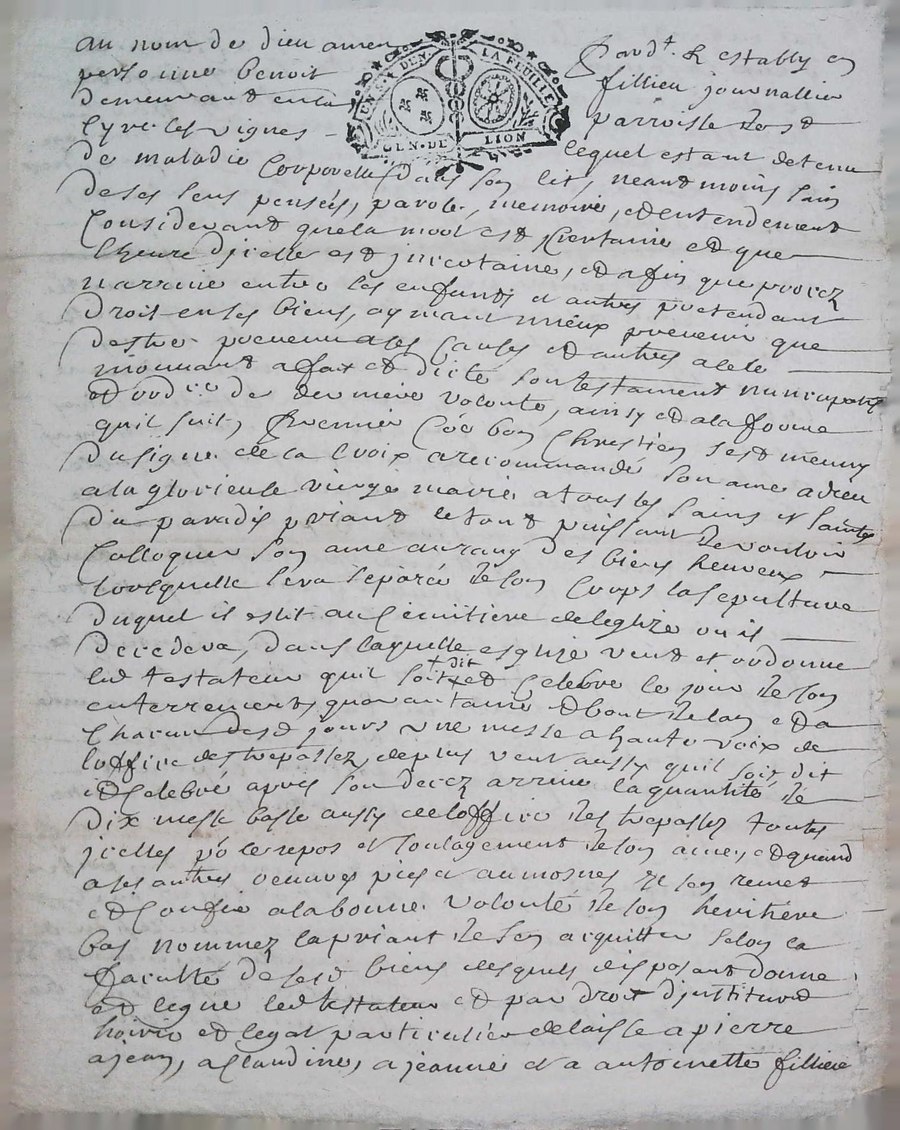 au nom de dieu amen pard.t & estably en
personne benoit fillieu journallier
demeurant en la parroisse de st
Cyre les vignes lequel estant detenu
UN S. SIX DEN. LA FEUILLE
GEN. DE LION
de maladie Corporelle dans son lit, neantmoins sain
de ses sens pensées, parole, memoire, et entendement
Considerant que la mort est Certaine et que
lheure djcelle est jncertaine, et afin que procez
narrive entre les enfants et autres pretendant
Droit en ses biens, aymant mieux prevenir que
destre prevenu a ses Causes et autres a ce le
mouvant a fait et dicté son testament nuncupatif
et ord.re de derniere volonté, ainsy et a la forme
quil suit, Premier Coe bon Chrestien sest muny
du signe de la Croix a recommandé son ame a dieu
a la glorieuse vierge marie a tous les saints et saintes
du paradis priant le tout puissant de vouloir
Colloquer son ame au rang des biens heureux
lorsquelle sera séparée de son Corps la sepulture
duquel il eslit au Cimitiere de leglize ou il
decedera, dans laquelle esglize veut et ordonne
led testateur quil soit dit et Celebré le jour de son
enterrement, quarantaine et bout de lan et a
Chacun desd jours une messe a haute voix de
loffice des trepassez, de plus veut aussy quil soit dit
et Celebré apres son decez arrivé la quantité de
dix messe basse aussy de loffice des trepassez toutes
jcelles p.r le repos et soulagement de son ame, et quand
a ses autres oeuvres pies et aumosnes Il sen remet
et Confie a la bonne volonté de son heritiere
bas nommez la priant de sen acquitter selon la
faculté de sesd biens desquels disposant donne
et legue led testateur et par droit djnstitution
hoirie et legat particulier delaisse a pierre
a jean, a Claudine, a jeanne et a antoinette fillieu